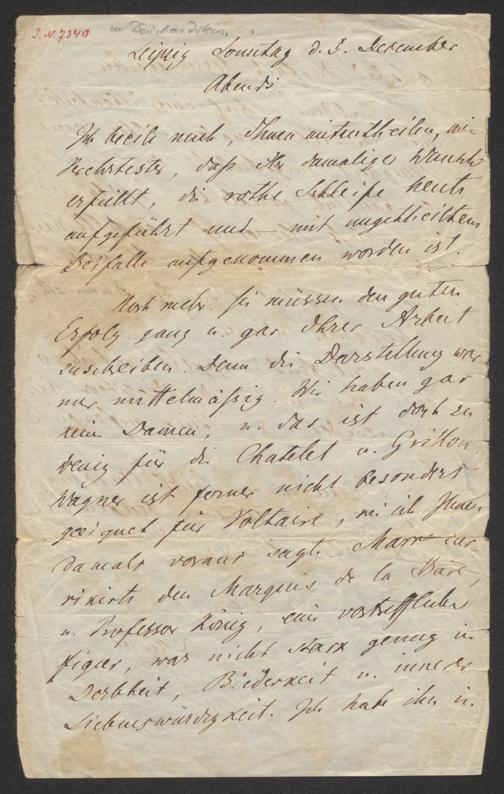 I.N. 7340
an Deinhardstein
Leipzig Sonntag d. 3. Dezember
Abends
Ich beeile mich, Ihnen mitzutheilen, mein
Verehrtester, daß Ihr damaliger Wunsch
erfüllt, die rothe Schleife heute
aufgeführt und mit ungetheiltem
Beifalle aufgenommen worden ist.
Noch mehr. Sie müssen den guten
Erfolg ganz u. gar Ihrer Arbeit
zuschreiben. Denn die Darstellung war
nur mittelmäßig. Wir haben gar
nur Damen, u. das ist doch zu
wenig für die Chatelet u. Grillon.
Wagner ist ferner nicht besonders
geeignet für Voltaire, wie ich Ihnen
damals voraus sagte. Marr car
rikirte den Marquis de la Bare,
u. Professor König, eine vortreffliche
Figur, war nicht stark genug in
Derbheit, Biederkeit u. innerer
Liebenswürdigkeit. Ich habe ihn in